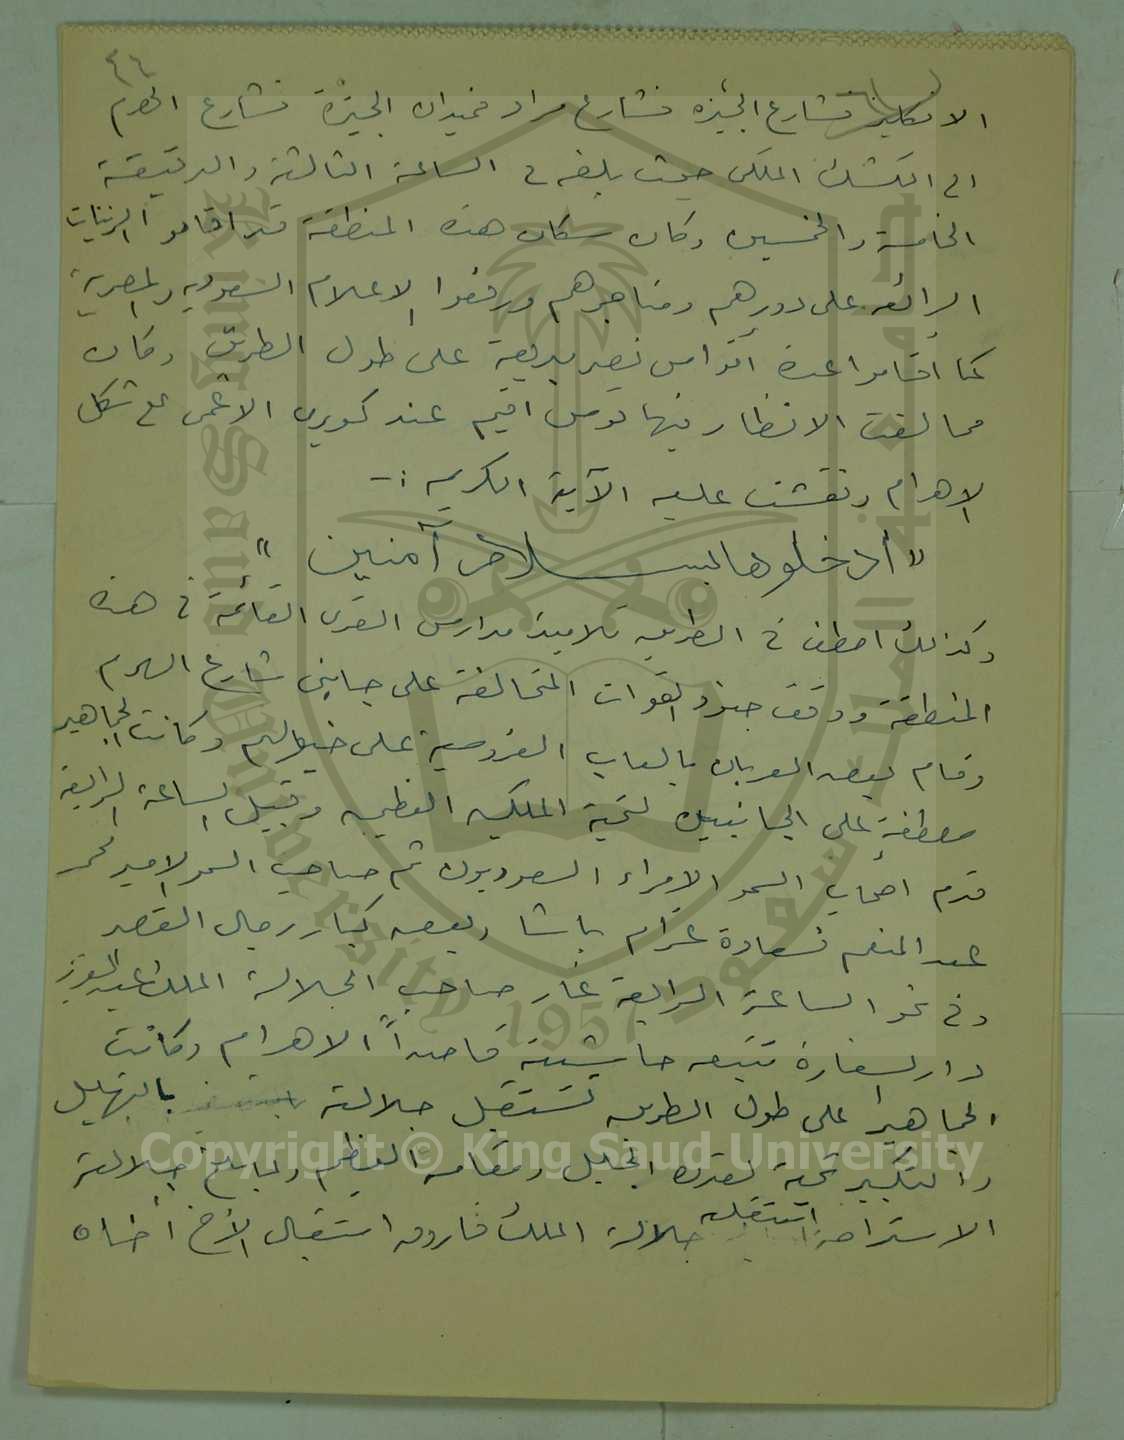 ٤٤
الانكليز فشارع الجيزه فشارع مراد فميدان الجيزة فشارع الهرم
الى الكشك الملكى حيث بلغه فى الساعة الثالثة والدقيقة
الخامسة والخمسين وكان سكان هذه المنطقة قد اقاموا الزينات
الرائعه على دورهم ومتاجرهم ورفعوا الاعلام السعوديه والمصرية
كما اقاموا عدة اقواس نصر بديعة على طول الطريق وكان
مما لفت الانظار فيها قوس اقيم عند كوبرى الاعمى على شكل
الاهرام ونقشت عليه الآية الكريمه :-
" أدخلوها بسلام آمنين "
وكذلك اصطف فى الطريق تلاميذ مدارس القرى القائمة فى هذه
المنطقة ووقف جنود القوات المتحالفة على جانبى شارع الهرم
وقام بعض العربان بالعاب الفروسية على خيولهم وكانت الجماهير
مصطفة على الجانبين لتحية الملكين العظيمين وقبيل الساعة الرابعة
قدم اصحاب السمو الامراء السعوديون ثم صاحب السمو الامير محمد
عبد المنعم فسعادة عزام باشا وبعض كبار رجال القصر
وفى نحو الساعة الرابعة غادر صاحب الجلالة الملك عبد العزيز
دار السفارة تتبعه حاشيته قاصداً الاهرام وكانت
الجماهير على طول الطريق تستقبل جلالته بالتهليل
والتكبير تحية لقدره الجليل ومقامه العظيم ولما بلغ جلالته
الاستراحة استقبله جلالة الملك فاروق استقبال الأخ أخاه
King Saud University
1957
جامعة الملك سعود
Copyright © King Saud University